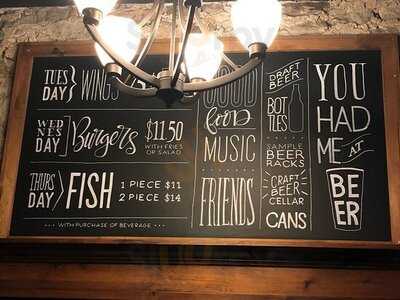 TUES
DAY
WINGS
WED
NES
DAY
Burgers
$11.50
WITH FRIES
OR SALAD
THURS
DAY
FISH
1 PIECE $11
2 PIECE $14
WITH PURCHASE OF BEVERAGE
GOOD
food
MUSIC
FRIENDS
DRAFT
BEER
BOT
TLES
SAMPLE
BEER
RACKS
CRAFT
BEER
CELLAR
CANS
YOU
HAD
ME AT
BE
ER